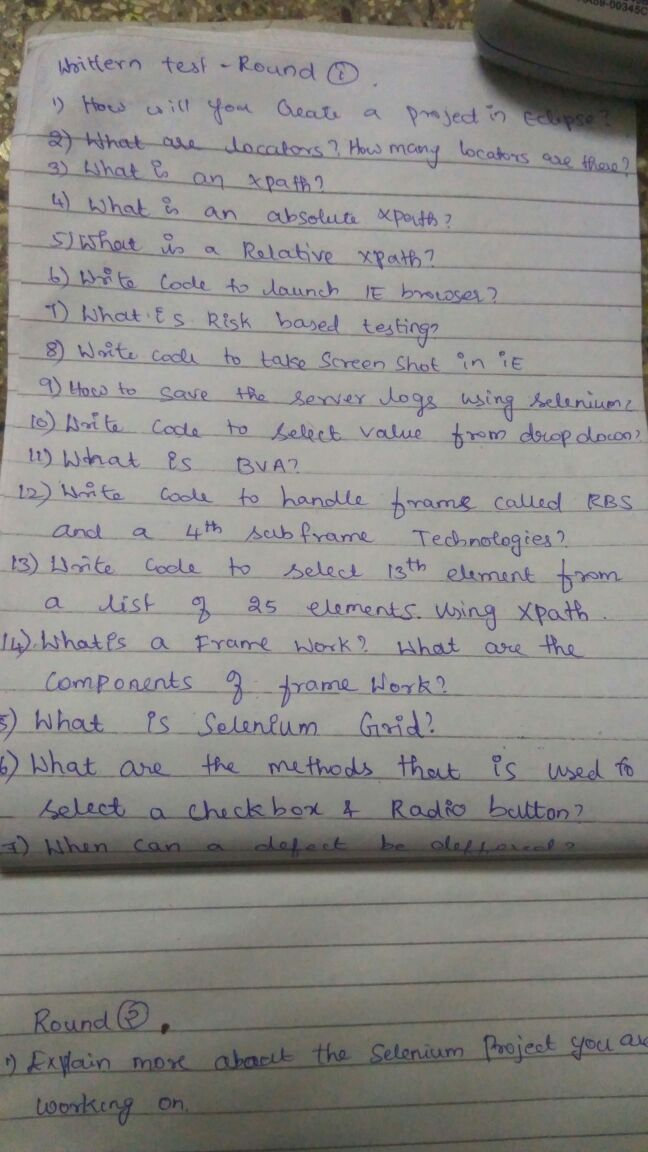 Writtern test - Round ①.
1) How will you Create a project in Eclipse?
2) What are locators? How many locators are there?
3) What is an xpath?
4) What is an absolute xpath?
5) What is a Relative xpath?
6) Write Code to launch IE browser?
7) What is Risk based testing?
8) Write code to take Screen Shot in iE
9) How to save the server logs using selenium?
10) Write Code to select value from drop down?
11) What is BVA?
12) Write Code to handle frame called RBS
and a 4th subframe Technologies?
13) Write Code to select 13th element from
a list of 25 elements. Using Xpath.
14). What is a Frame Work? What are the
Components of frame Work?
5) What is Selenium Grid?
6) What are the methods that is used to
select a checkbox & Radio button?
7) When can a defect be defferred?
Round ②.
1) Explain more about the Selenium Project you are
working on.